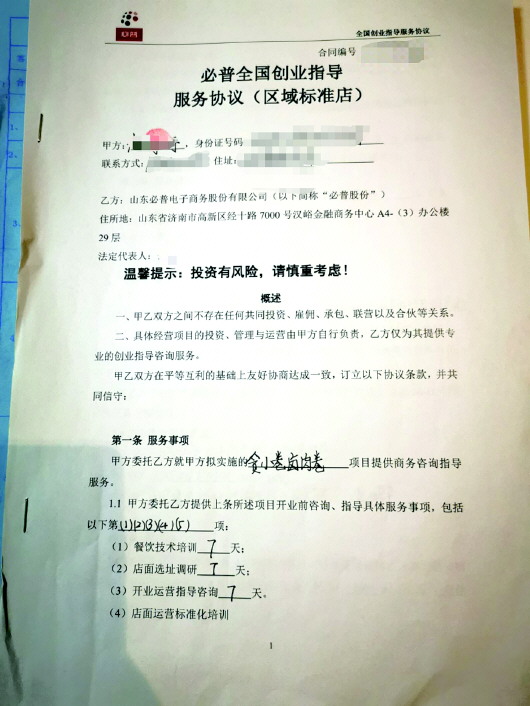 全国创业指导服务协议
合同编号
必普全国创业指导
服务协议（区域标准店）
甲方： ，身份证号码
联系方式： 住址：
乙方：山东必普电子商务股份有限公司（以下简称“必普股份”）
住所地：山东省济南市高新区经十路 7000 号汉峪金融商务中心 A4-（3）办公楼
29 层
法定代表人：
温馨提示：投资有风险，请慎重考虑！
概述
一、甲乙双方之间不存在任何共同投资、雇佣、承包、联营以及合伙等关系。
二、具体经营项目的投资、管理与运营由甲方自行负责，乙方仅为其提供专
业的创业指导咨询服务。
甲乙双方在平等互利的基础上友好协商达成一致，订立以下协议条款，并共
同信守：
第一条 服务事项
甲方委托乙方就甲方拟实施的 小卷卤肉卷 项目提供商务咨询指导
服务。
1.1 甲方委托乙方提供上条所述项目开业前咨询、指导具体服务事项，包括
以下第(1)(2)(3)(4)(5)项：
（1）餐饮技术培训 7 天；
（2）店面选址调研 7 天；
（3）开业运营指导咨询 7 天。
（4）店面运营标准化培训
1